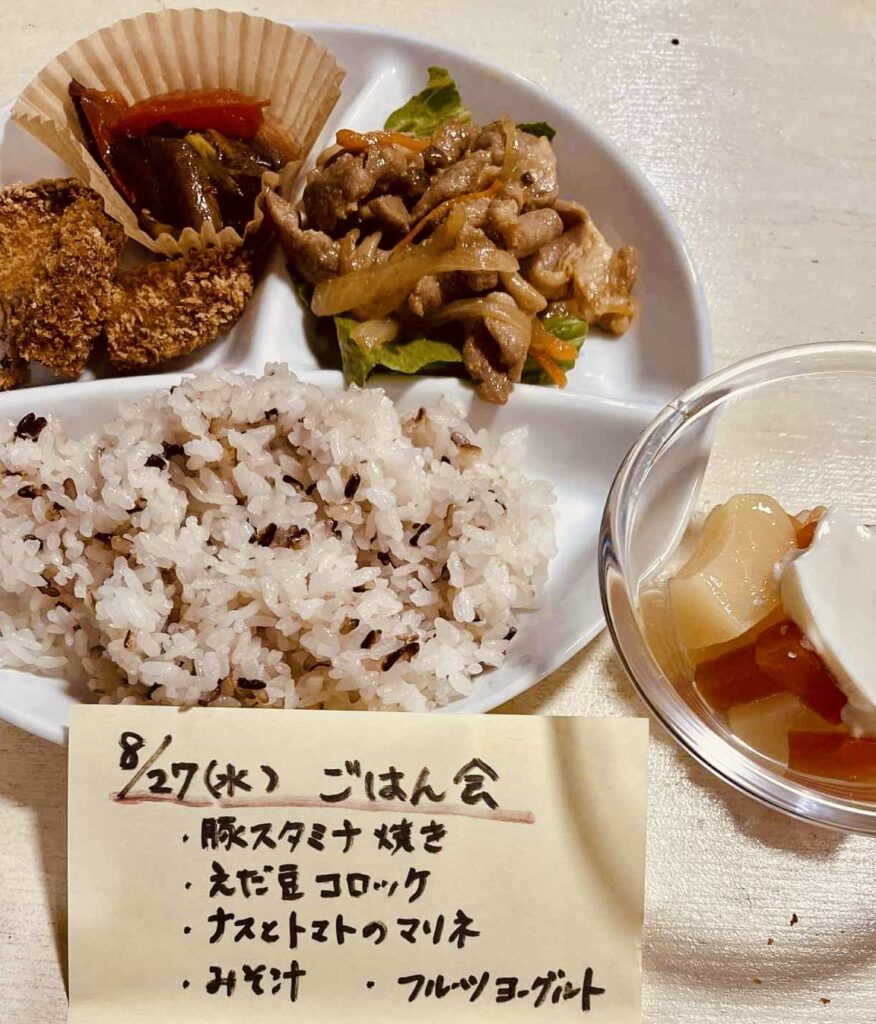 8/27(水) ごはん会
・豚スタミナ焼き
・えだ豆コロッケ
・ナスとトマトのマリネ
・みそ汁 ・フルーツヨーグルト